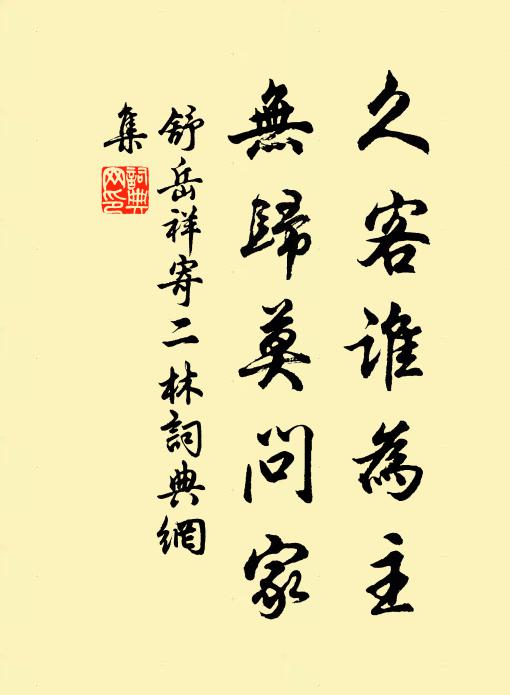 久客誰為主
無歸莫問家
舒岳祥寄二林詞典網
集
詞典
网印